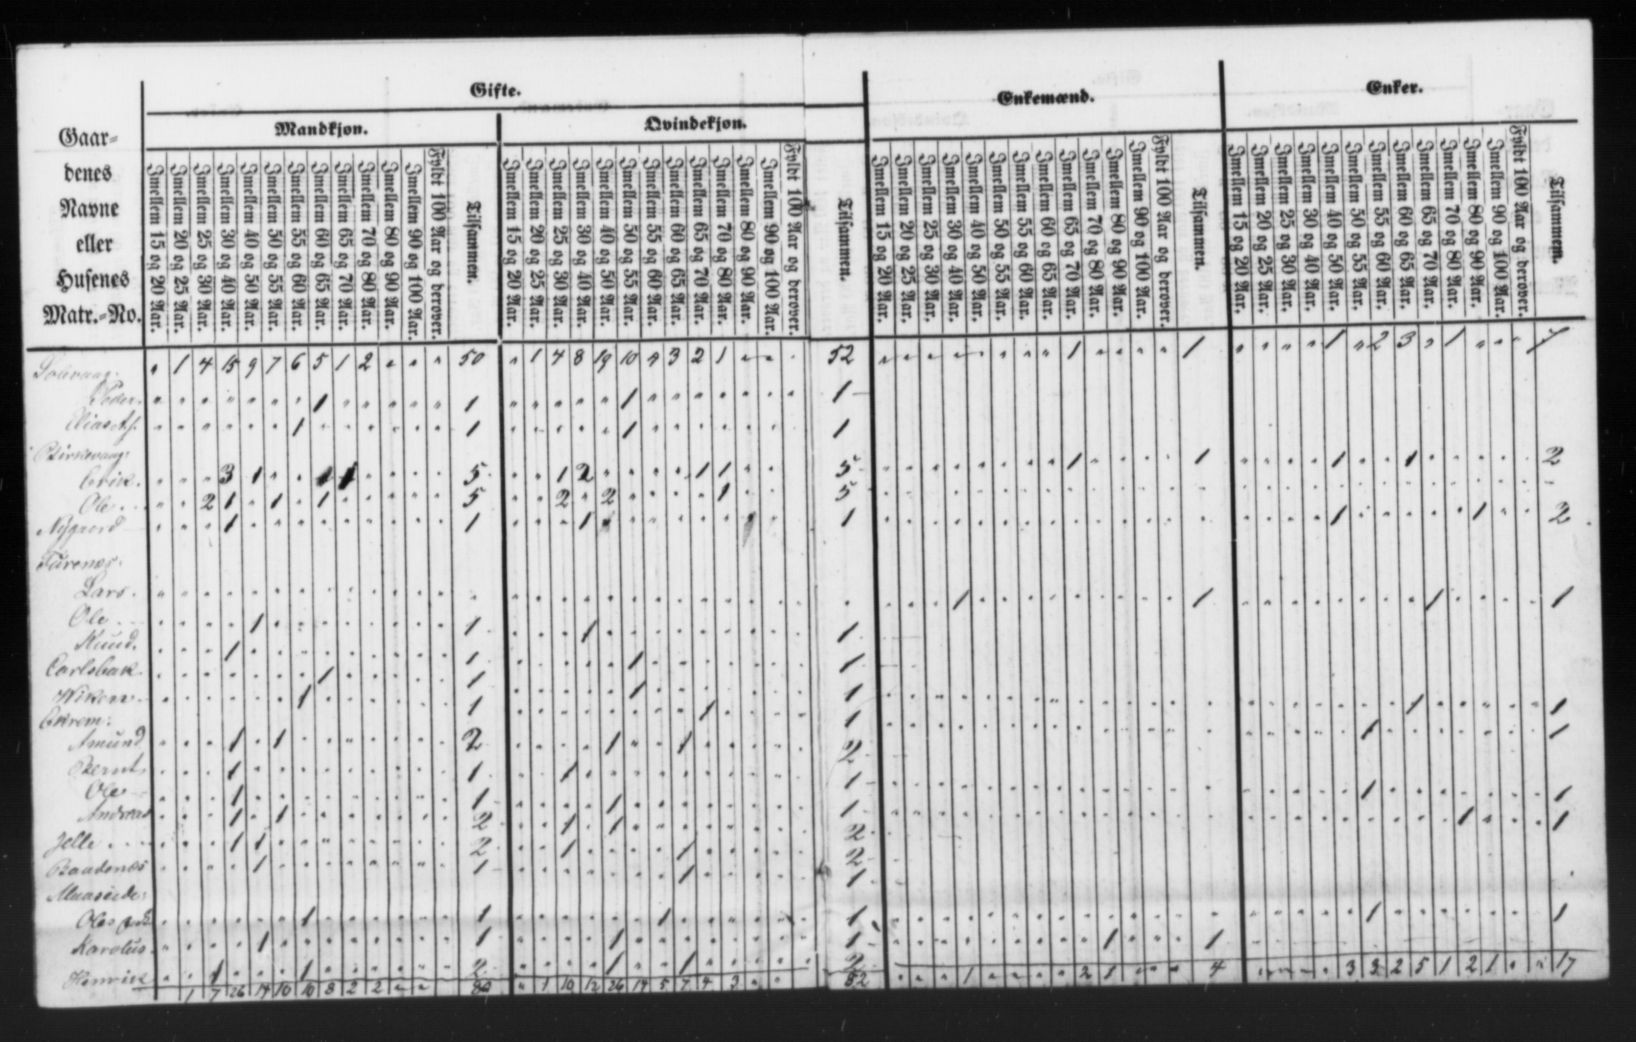 Gifte.
Enkemænd.
Enker.
Mandkjøn.
Qvindekjøn.
Gaar-
denes
Navne
eller
Husenes
Matr.-No.
Imellem 15 og 20 Aar.
Imellem 20 og 25 Aar.
Imellem 25 og 30 Aar.
Imellem 30 og 40 Aar.
Imellem 40 og 50 Aar.
Imellem 50 og 55 Aar.
Imellem 55 og 60 Aar.
Imellem 60 og 65 Aar.
Imellem 65 og 70 Aar.
Imellem 70 og 80 Aar.
Imellem 80 og 90 Aar.
Imellem 90 og 100 Aar.
Fyldt 100 Aar og derover.
Tilsammen.
Imellem 15 og 20 Aar.
Imellem 20 og 25 Aar.
Imellem 25 og 30 Aar.
Imellem 30 og 40 Aar.
Imellem 40 og 50 Aar.
Imellem 50 og 55 Aar.
Imellem 55 og 60 Aar.
Imellem 60 og 65 Aar.
Imellem 65 og 70 Aar.
Imellem 70 og 80 Aar.
Imellem 80 og 90 Aar.
Imellem 90 og 100 Aar.
Fyldt 100 Aar og derover.
Tilsammen.
Imellem 15 og 20 Aar.
Imellem 20 og 25 Aar.
Imellem 25 og 30 Aar.
Imellem 30 og 40 Aar.
Imellem 40 og 50 Aar.
Imellem 50 og 55 Aar.
Imellem 55 og 60 Aar.
Imellem 60 og 65 Aar.
Imellem 65 og 70 Aar.
Imellem 70 og 80 Aar.
Imellem 80 og 90 Aar.
Imellem 90 og 100 Aar.
Fyldt 100 Aar og derover.
Tilsammen.
Imellem 15 og 20 Aar.
Imellem 20 og 25 Aar.
Imellem 25 og 30 Aar.
Imellem 30 og 40 Aar.
Imellem 40 og 50 Aar.
Imellem 50 og 55 Aar.
Imellem 55 og 60 Aar.
Imellem 60 og 65 Aar.
Imellem 65 og 70 Aar.
Imellem 70 og 80 Aar.
Imellem 80 og 90 Aar.
Imellem 90 og 100 Aar.
Fyldt 100 Aar og derover.
Tilsammen.
1 4 15 9 7 6 5 1 2 50 1 4 8 19 10 3 2 1 52 1 1 1 2 3 1
Peder 1 1 1 1
1 1 1 1
Erik 3 1 1 1 5 1 2 1 1 5 1 1 1 1 2
Ole 2 1 1 1 5 2 2 1 5
Nygaard 1 1 1 1 1 1 2
Lars 1 1 1 1
Ole 1 1 1 1
Knud 1 1 1 1
1 1 1 1
1 1 1 1 1 1
Amund 1 1 2 1 1 2 1 1
Bernt 1 1 1 1
Ole 1 1 1 1 1 1
Andreas 1 1 2 1 1 2 1 1
1 1 2 1 1 2
1 1 1 1
Ole 1 1 1 1 1 1
Karolus 1 1 1 1 1 1
Henrik 1 1 2 1 1 2
1 7 26 14 10 10 8 2 2 80 1 10 12 26 14 5 7 4 3 82 1 2 1 4 3 3 2 5 1 2 1 17